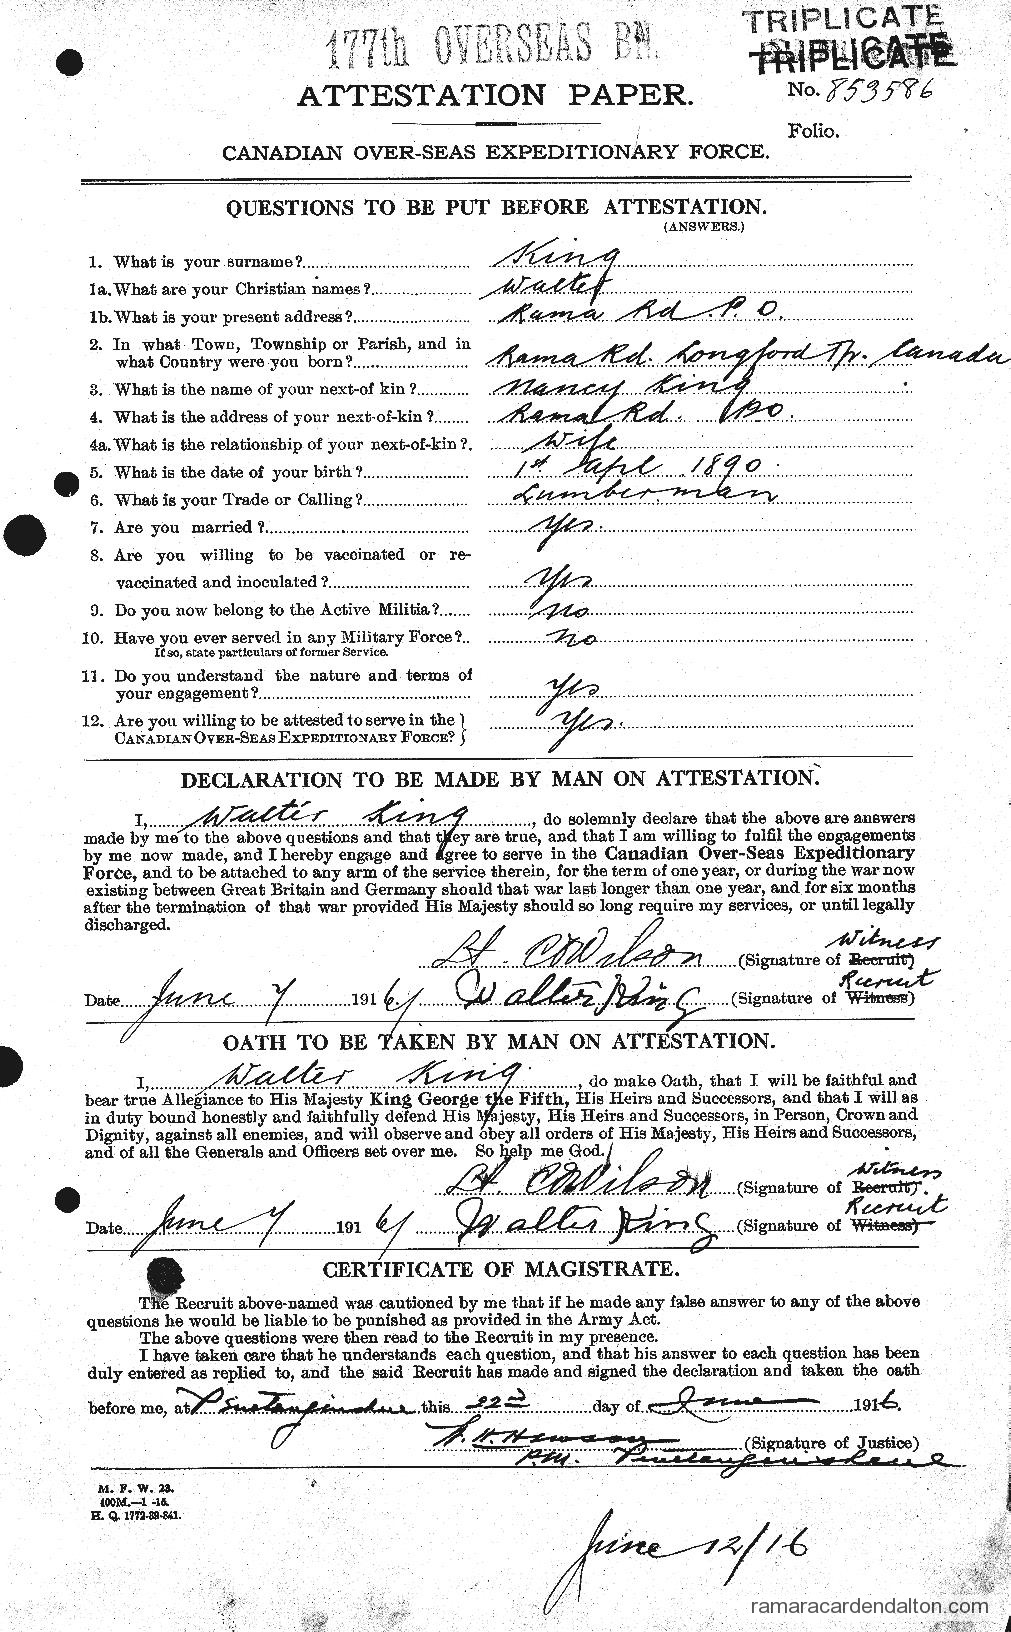 177th OVERSEAS BN.
TRIPLICATE
TRIPLICATE
ATTESTATION PAPER.
No. 853586
Folio.
CANADIAN OVER-SEAS EXPEDITIONARY FORCE.
QUESTIONS TO BE PUT BEFORE ATTESTATION.
(ANSWERS.)
1. What is your surname? King
1a. What are your Christian names? Walter
1b. What is your present address? Rama Rd P.O.
2. In what Town, Township or Parish, and in
what Country were you born? Rama Rd. Longford Tp. Canada
3. What is the name of your next-of kin? Nancy King
4. What is the address of your next-of-kin? Rama Rd. P.O.
4a. What is the relationship of your next-of-kin? Wife
5. What is the date of your birth? 1st Apl 1890
6. What is your Trade or Calling? Lumberman
7. Are you married? Yes.
8. Are you willing to be vaccinated or re-
vaccinated and inoculated? Yes
9. Do you now belong to the Active Militia? No
10. Have you ever served in any Military Force? No
If so, state particulars of former Service.
11. Do you understand the nature and terms of
your engagement? Yes
12. Are you willing to be attested to serve in the }
CANADIAN OVER-SEAS EXPEDITIONARY FORCE? } Yes.
DECLARATION TO BE MADE BY MAN ON ATTESTATION.
I, Walter King, do solemnly declare that the above are answers
made by me to the above questions and that they are true, and that I am willing to fulfil the engagements
by me now made, and I hereby engage and agree to serve in the Canadian Over-Seas Expeditionary
Force, and to be attached to any arm of the service therein, for the term of one year, or during the war now
existing between Great Britain and Germany should that war last longer than one year, and for six months
after the termination of that war provided His Majesty should so long require my services, or until legally
discharged.
Witness
Lt. C D Wilson (Signature of Recruit)
Recruit
Date June 7 1916. Walter King (Signature of Witness)
OATH TO BE TAKEN BY MAN ON ATTESTATION.
I, Walter King, do make Oath, that I will be faithful and
bear true Allegiance to His Majesty King George the Fifth, His Heirs and Successors, and that I will as
in duty bound honestly and faithfully defend His Majesty, His Heirs and Successors, in Person, Crown and
Dignity, against all enemies, and will observe and obey all orders of His Majesty, His Heirs and Successors,
and of all the Generals and Officers set over me. So help me God.
Witness
Lt. C D Wilson (Signature of Recruit).
Recruit
Date June 7 1916 Walter King (Signature of Witness)
CERTIFICATE OF MAGISTRATE.
The Recruit above-named was cautioned by me that if he made any false answer to any of the above
questions he would be liable to be punished as provided in the Army Act.
The above questions were then read to the Recruit in my presence.
I have taken care that he understands each question, and that his answer to each question has been
duly entered as replied to, and the said Recruit has made and signed the declaration and taken the oath
before me, at Penetanguishene this 22nd day of June 1916.
Hewson (Signature of Justice)
P.M. Penetanguishene
M. F. W. 23.
400M.—1-15.
H. Q. 1772-39-841.
June 12/16
ramaracardendalton.com